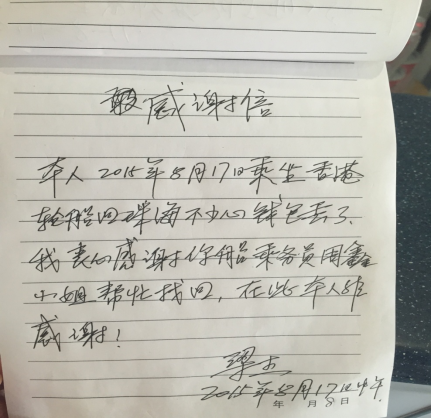 感谢信
本人2015年8月17日乘坐香港
轮船回珠海不小心钱包丢了.
我衷心感谢你船乘务员周鑫
小姐帮忙找回,在此本人
感谢!
梁杰
2015年8月17日中午
年 月 日